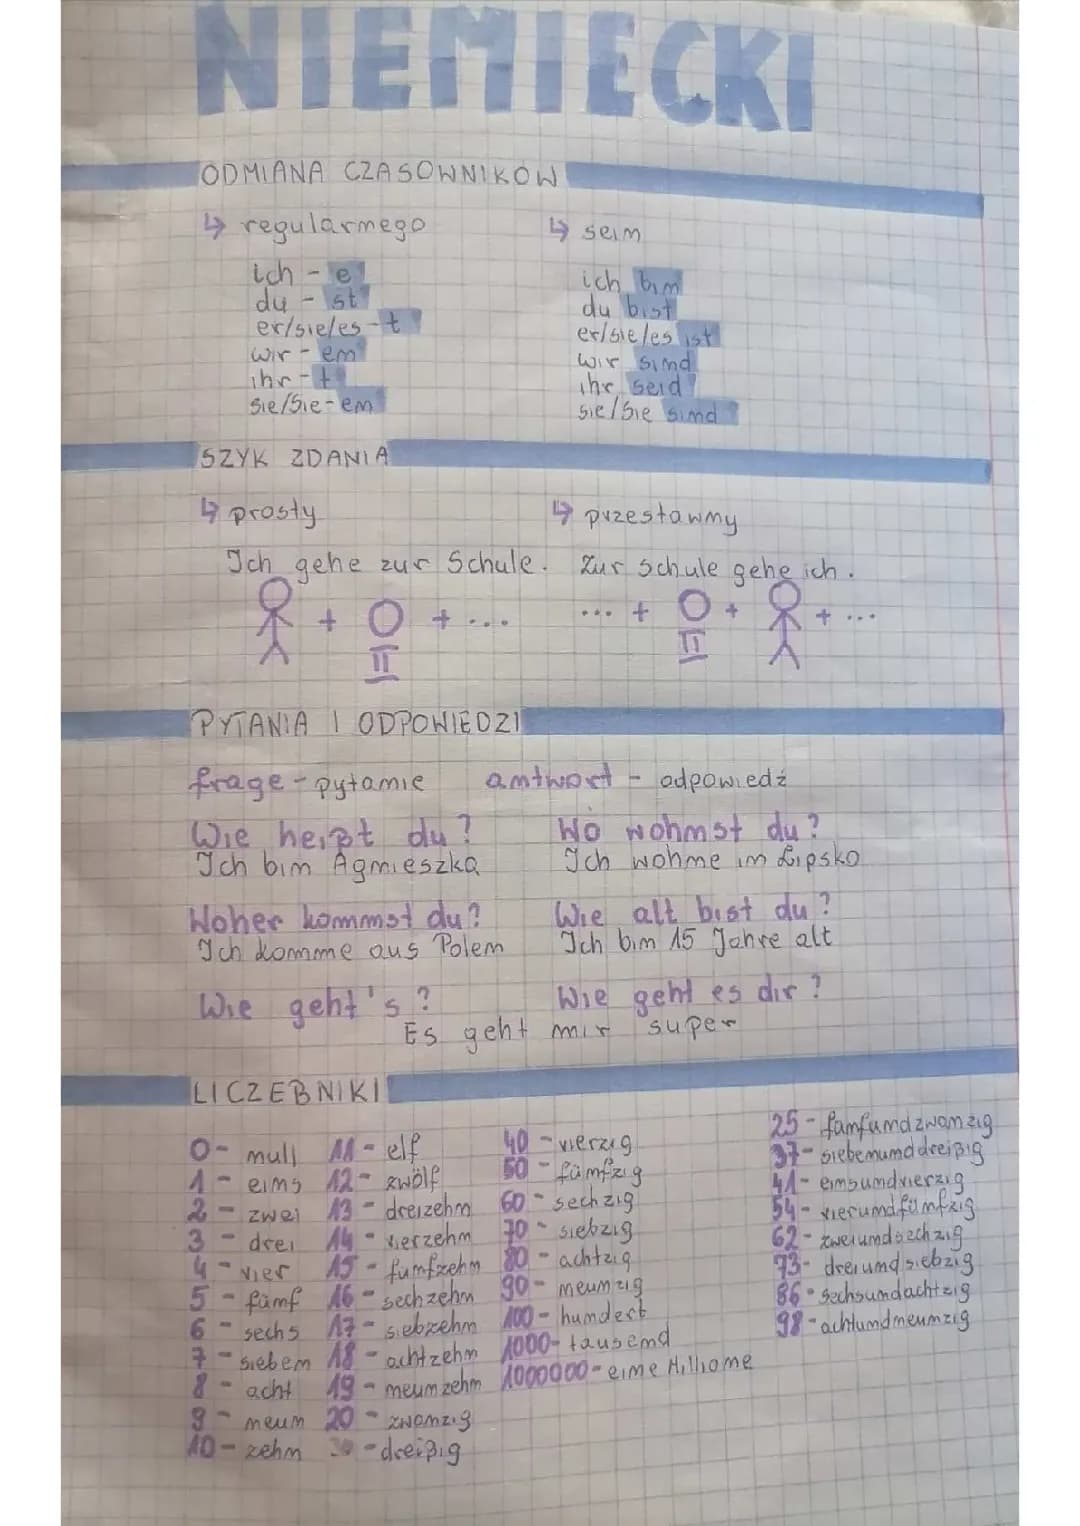 NIEMIECKI
ODMIANA CZASOWNIKÓW
↳ regularnego
ich - e
du - st
er/sie/es - t
wir - en
ihr - t
sie/Sie - en
↳ sein
ich bin
du bist
er/sie/es ist
wir sind
ihr seid
sie/Sie sind
SZYK ZDANIA
↳ prosty
Ich gehe zur Schule.
+ II + ...
↳ przestawny
Zur Schule gehe ich.
... + II + + ...
PYTANIA I ODPOWIEDZI
frage - pytanie antwort - odpowiedź
Wie heißt du? Wo wohnst du?
Ich bin Agnieszka Ich wohne in Lipsko
Woher kommst du? Wie alt bist du?
Ich komme aus Polen Ich bin 15 Jahre alt
Wie geht's? Wie geht es dir?
Es geht mir super
LICZEBNIKI
0 - null
1 - eins
2 - zwei
3 - drei
4 - vier
5 - fünf
6 - sechs
7 - sieben
8 - acht
9 - neun
10 - zehn
11 - elf
12 - zwölf
13 - dreizehn
14 - vierzehn
15 - fumfzehn
16 - sechzehn
17 - siebzehn
18 - achtzehn
19 - neunzehn
20 - zwanzig
30 - dreißig
40 - vierzig
50 - fünfzig
60 - sechzig
70 - siebzig
80 - achtzig
90 - neunzig
100 - hundert
1000 - tausend
1000000 - eine Millione
25 - fanfundzwanzig
37 - siebenunddreißig
41 - einsundvierzig
54 - vierundfünfzig
62 - zweiundsechzig
73 - dreiundsiebzig
86 - sechsundachtzig
98 - achtundneunzig